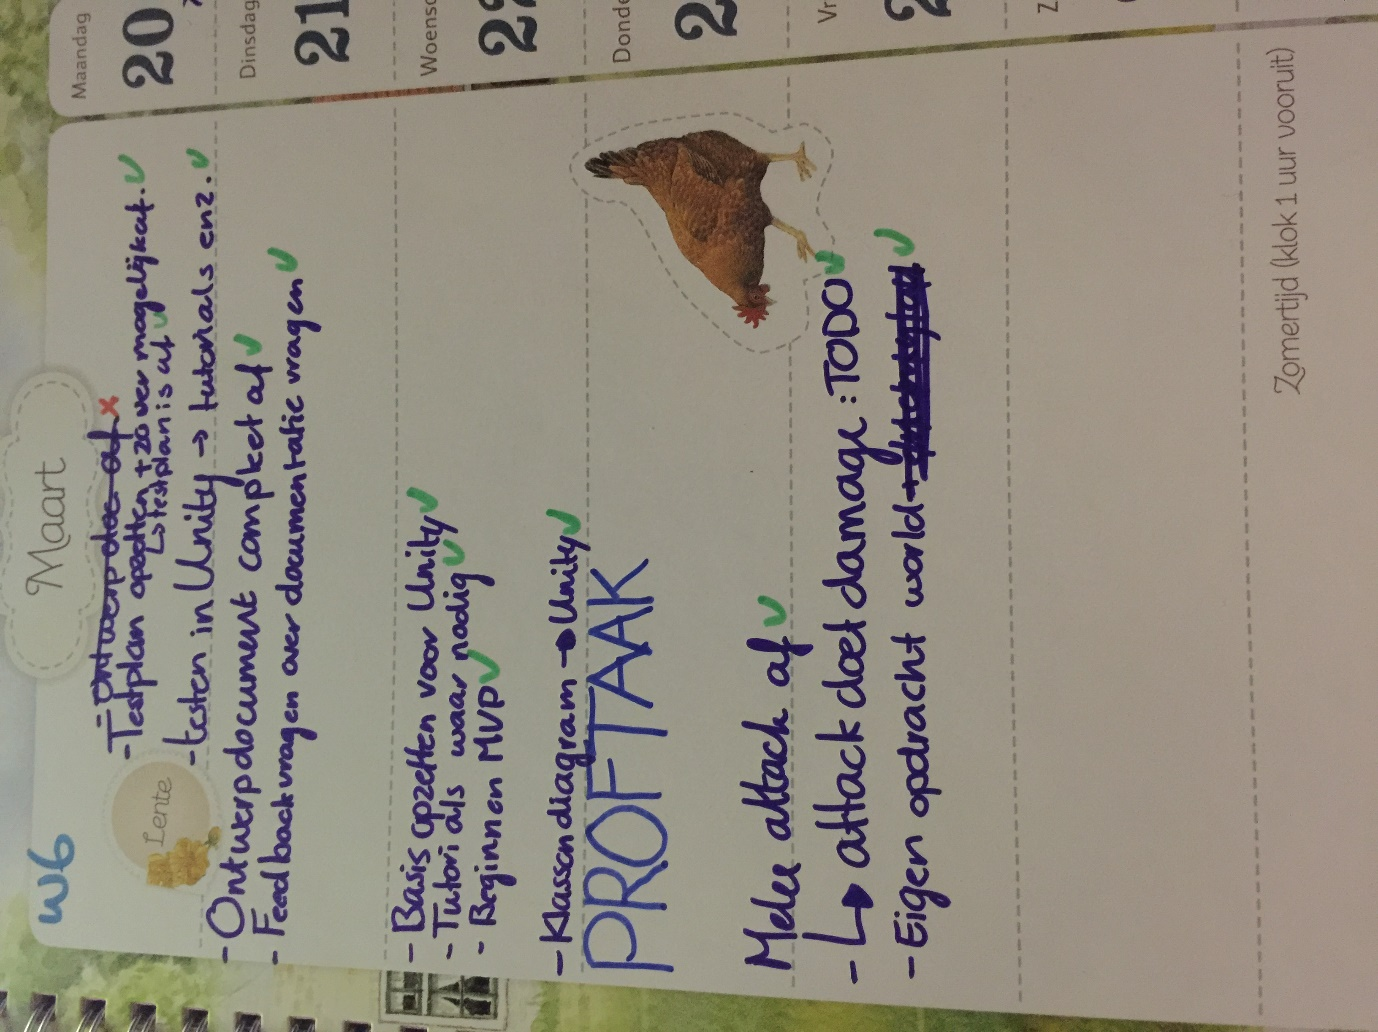 Maart
W6
Lente
Maandag
20
- Ontwerp doc af x
- Testplan opzetten + zo ver mogelijk af.
↳ testplan is af
- testen in Unity → tutorials enz.
Dinsdag
21
- Ontwerpdocument compleet af
- Feedback vragen over documentatie vragen
Woensd
22
- Basis opzetten voor Unity
- Tutorials waar nodig
- Beginnen MVP
- Klassendiagram → Unity
Donde
2
PROFTAAK
Melee attack af
Vr
2
- ↳ attack doet damage : TODO
- Eigen opdracht world +
Z
Zomertijd (klok 1 uur vooruit)